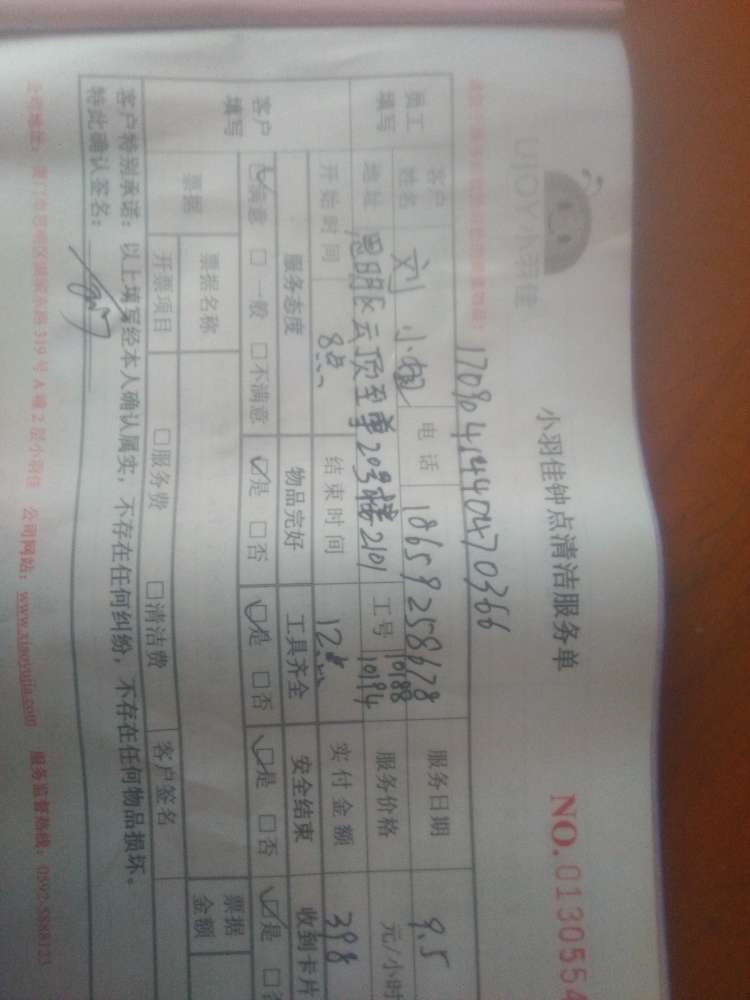 UJOY小羽佳
小羽佳钟点清洁服务单
NO.0130554
员工填写
客户姓名 刘小姐 电话 18659258678 服务日期 9.5
地址 思明区云顶至尊203楼2101 工号 10188 10194 服务价格 元/小时
开始时间 8点 结束时间 12点 实付金额 398
客户填写
服务态度 物品完好 工具齐全 安全结束 收到卡片
☑满意 □一般 □不满意 ☑是 □否 ☑是 □否 ☑是 □否 ☑是
票据 票据名称 票据金额
开票项目 □服务费 □清洁费 客户签名
客户特别承诺：以上填写经本人确认属实，不存在任何纠纷，不存在任何物品损坏。
特此确认签名：
公司网站：www.xiaoyujia.com 服务监督热线：0592-5888123